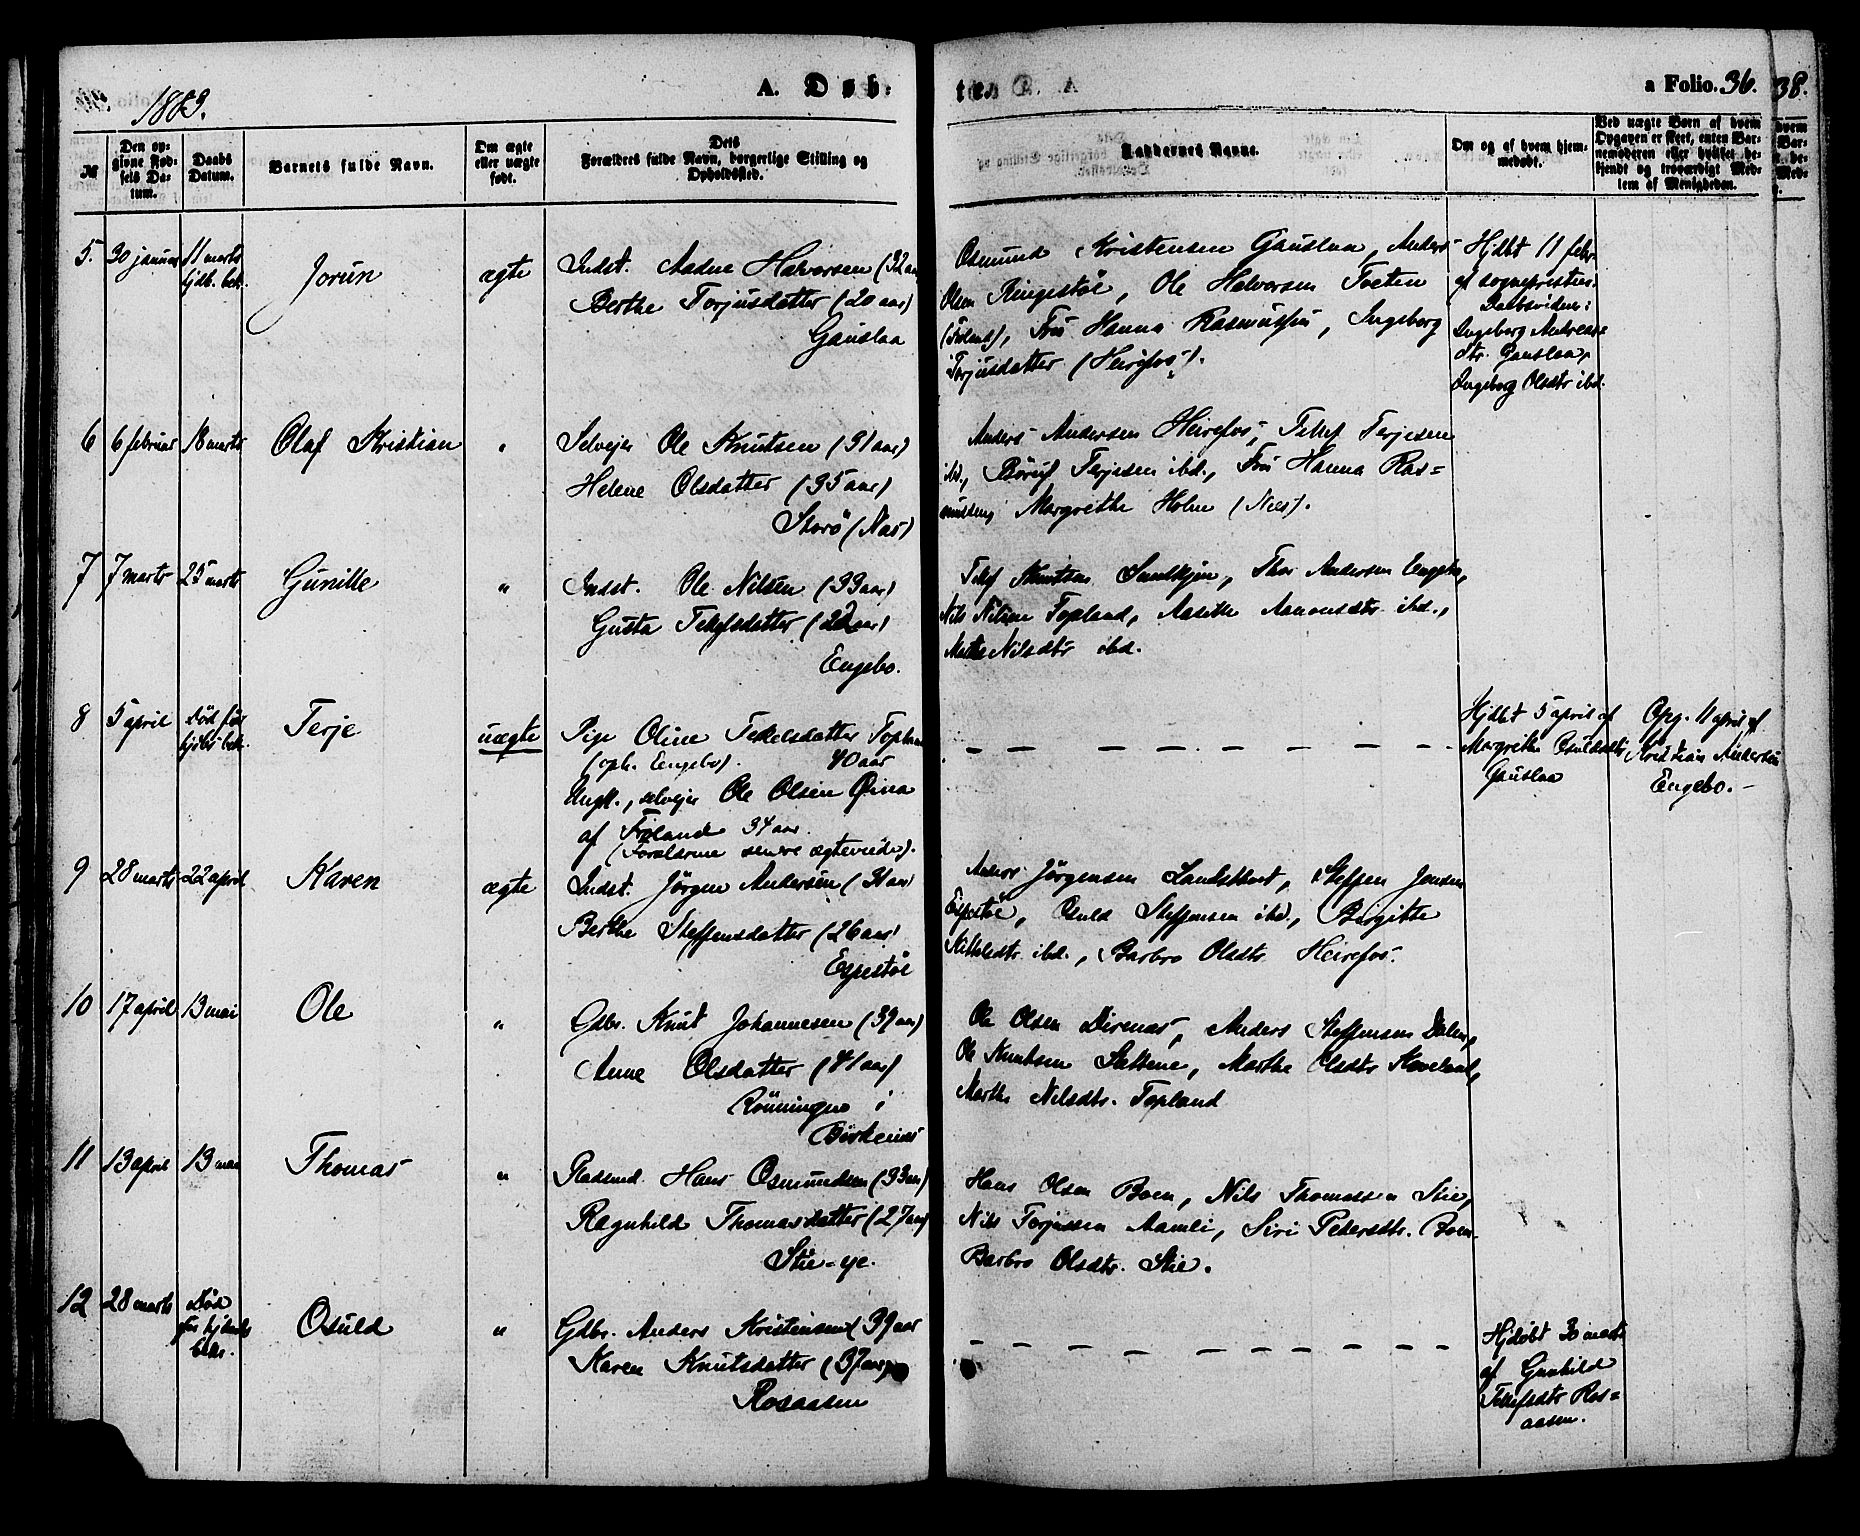 1883.
A. Døb-
te.
a Folio. 36.
38.
№
Den opgivne Fødsels Datum.
Daabs Datum.
Barnets fulde Navn.
Om ægte eller uægte født.
Dets Forældres fulde Navn, borgerlige Stilling og Opholdssted.
Faddernes Navne.
Om og af hvem hjemmedøbt.
Ved uægte Børn af hvem Opgaven er skeet, enten Barnemoderen eller hvilket bekjendt og troværdigt Medlem af Menigheden.
5. 30 januar 11 marts
hjdb. bek.
Jorun
ægte
Indst. Aadne Halvorsen (32 aar)
Berthe Torjusdatter (20 aar)
Gauslaa
Osmund Kristensen Gauslaa, Anders
Olsen Ringestöl, Ole Halvorsen Tveten
Fru Hanna Rasmussen, Ingeborg
Torjusdatter (Heirefos).
Hjdbt 11 febr.
af sognepresten.
Daabsvidner:
Ingeborg Andreas-
dtr. Gauslaa,
Ingeborg Olsdtr ibd.
6 6 februar 18 marts
Olaf Kristian
"
Selvejer Ole Knutsen (31 aar)
Helene Olsdatter (35 aar)
Storö (Næs)
Anders Andersen Heirefos, Tellef Terjesen
ibd., Böruf Terjesen ibd., Fru Hanna Ras-
mussen, Margrethe Holm (Næs).
7 7 marts 25 marts
Gunille
"
Indst. Ole Nilsen (33 aar)
Gusta Tellefsdatter (22 aar)
Engebo.
Tellef Knutsen Thor Andersen Engebo,
Nils Nilsen Topland, Aasille Aanonsdtr. ibd.,
Nilsdtr ibd.
8 5 april Død før
hjdbs bek.
Terje
uægte
Pige Oline Tellefsdatter Topland
(oph. Engebo). 40 aar
Ungk., selvejer Ole Olsen
af Froland 34 aar.
(Forældrene senere ægteviede).
Hjdbt 5 april af
Margrethe Osuldsdtr
Gauslaa
Opg. 11 april af
Kristian Andersen
Engebo. -
9 28 marts 22 april
Karen
ægte
Indst. Jörgen Andersen (31 aar)
Berthe Steffensdatter (26 aar)
Espestöl
Anders Jörgensen Steffen Jensen
Espestöl, Osuld Steffensen ibd., Birgitte
ibd., Barbro Olsdtr Heirefos.
10 17 april 13 mai
Ole
"
Gdbr. Knut Johannesen (39 aar)
Anne Olsdatter (41 aar)
Rönningen i
Birkenes
Ole Olsen Birenes, Anders Steffensen Dalen,
Ole Knutsen Marthe Olsdtr Haveland,
Marthe Nilsdtr. Topland
11 13 april 13 mai
Thomas
"
Pladsmd. Hans Osmundsen (33 aar)
Ragnhild Thomasdatter (27 aar)
Stie-eje.
Hans Olsen Boen, Nils Thomassen Stie,
Nils Torjussen Aamli, Siri Pedersdtr. Boen
Barbro Olsdtr. Stie.
12 28 marts Død
før hjdaabs
bekr.
Osuld
"
Gdbr. Anders Kristensen (39 aar
Karen Knutsdatter (37 aar)
Rosaasen
Hjdøbt 30 marts
af Gunhild
Tellefsdtr Ros-
aasen.